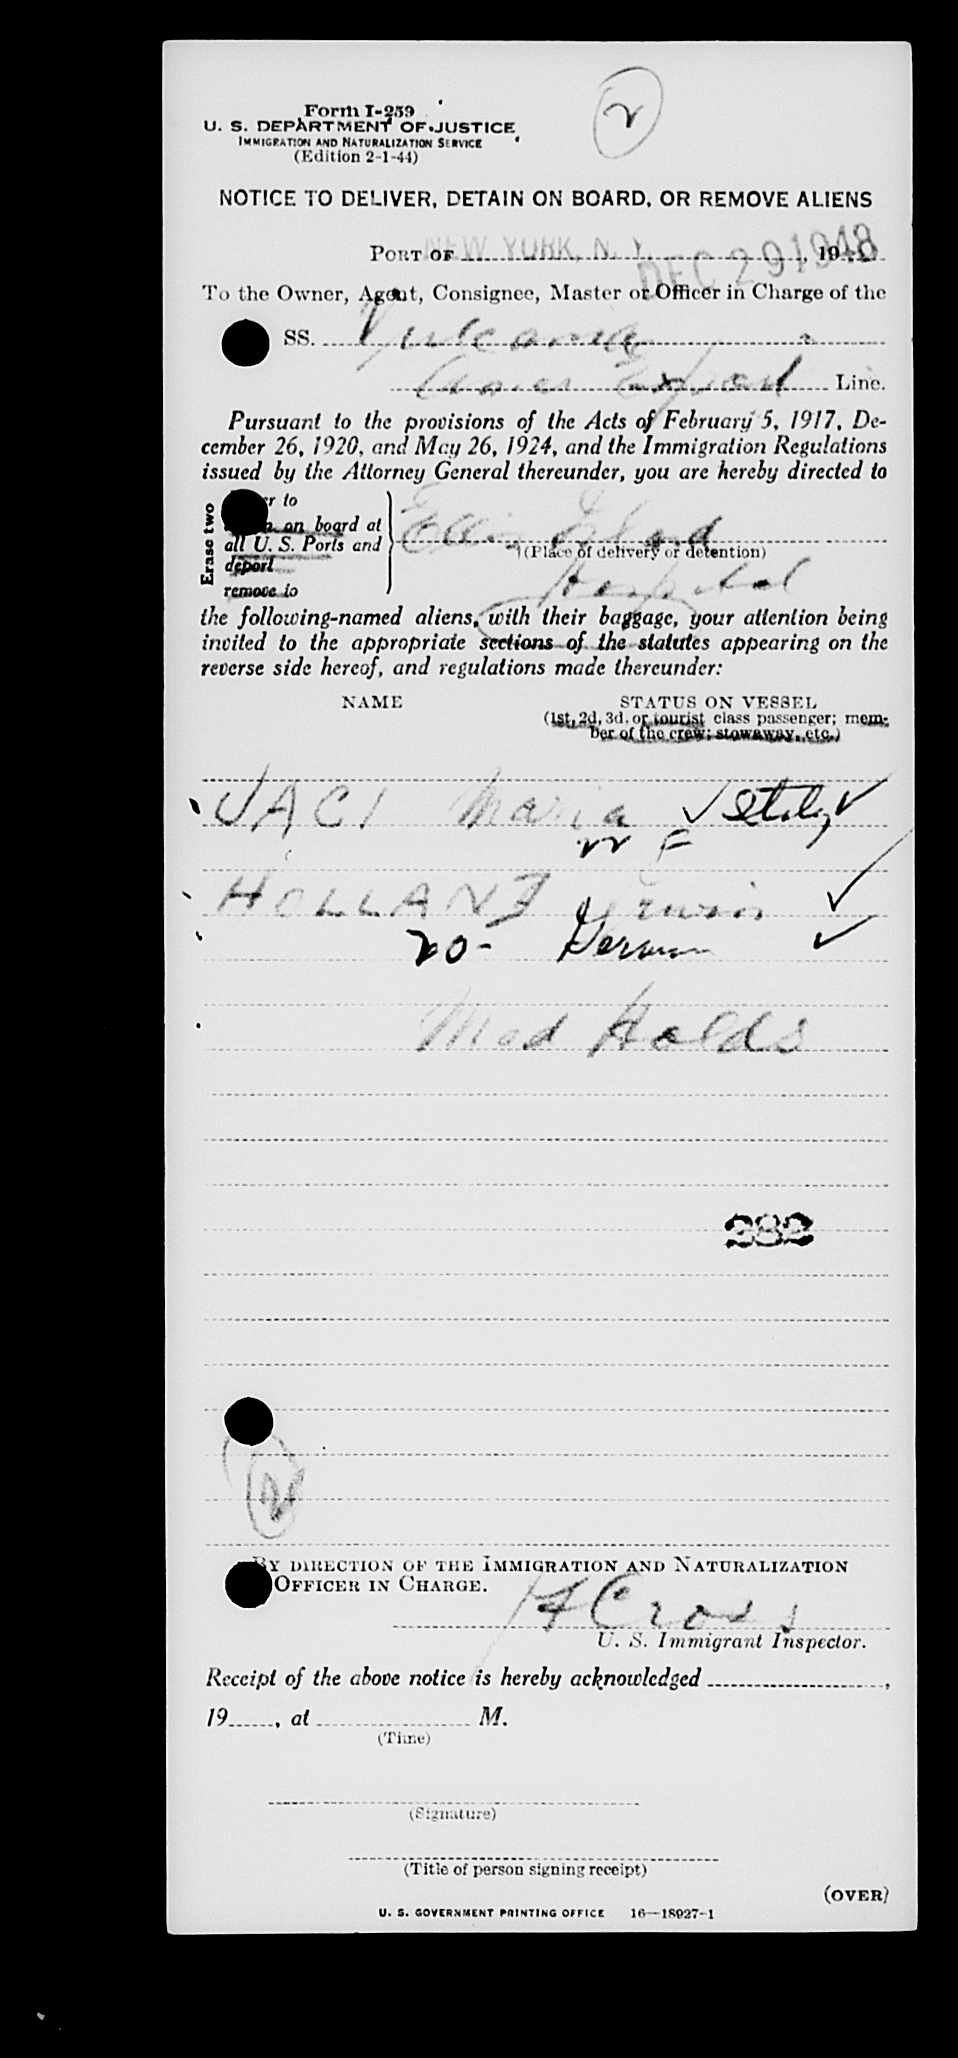 2
Form I-259
U. S. DEPARTMENT OF JUSTICE
IMMIGRATION AND NATURALIZATION SERVICE
(Edition 2-1-44)
NOTICE TO DELIVER, DETAIN ON BOARD, OR REMOVE ALIENS
PORT OF NEW YORK, N. Y. DEC 29 1948, 19
To the Owner, Agent, Consignee, Master or Officer in Charge of the
SS. Vulcania
Amer Export Line.
Pursuant to the provisions of the Acts of February 5, 1917, De-
cember 26, 1920, and May 26, 1924, and the Immigration Regulations
issued by the Attorney General thereunder, you are hereby directed to
Erase two
to
on board at
all U. S. Ports and
deport
remove to
Ellis Island
(Place of delivery or detention)
Hospital
the following-named aliens, with their baggage, your attention being
invited to the appropriate sections of the statutes appearing on the
reverse side hereof, and regulations made thereunder:
NAME STATUS ON VESSEL
(1st, 2d, 3d, or tourist class passenger; mem-
ber of the crew; stowaway, etc.)
JACI Maria Italy
F
HOLLAND Erwin
20- German
Med Holds
282
2
BY DIRECTION OF THE IMMIGRATION AND NATURALIZATION
OFFICER IN CHARGE.
H F Cross
U. S. Immigrant Inspector.
Receipt of the above notice is hereby acknowledged ,
19 , at M.
(Time)
(Signature)
(Title of person signing receipt)
(OVER)
U. S. GOVERNMENT PRINTING OFFICE 16—18027-1